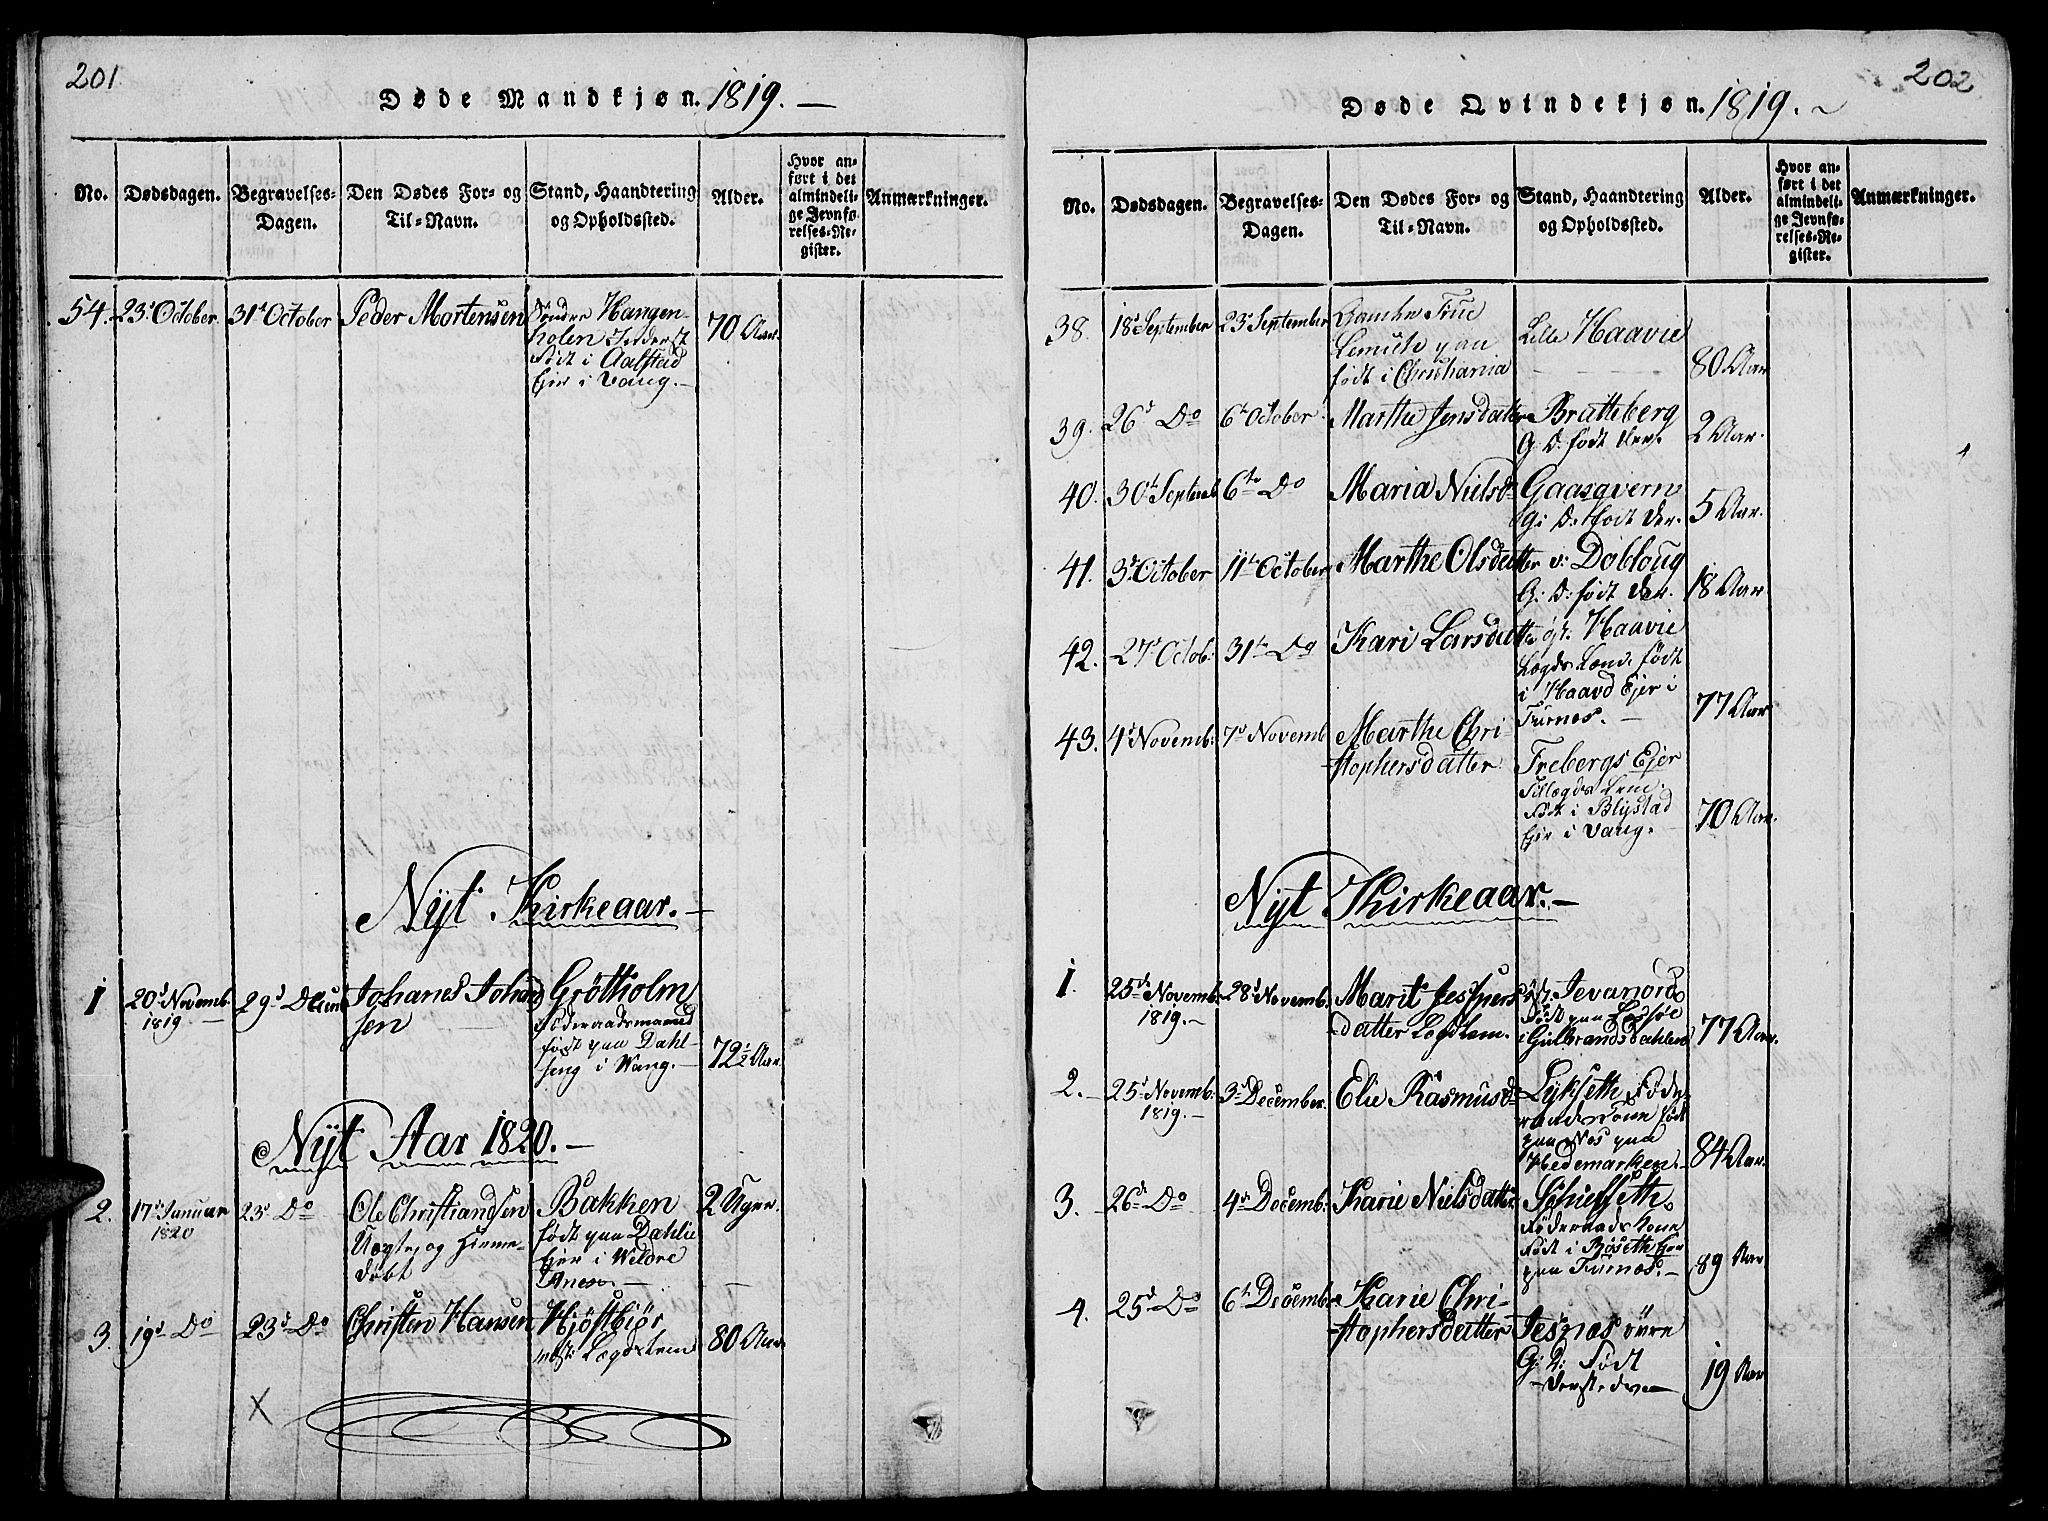 201
Døde Mandkjøn. 1819. —
No.
Dødsdagen.
Begravelses-
Dagen.
Den Dødes For- og
Til-Navn.
Stand, Haandtering
og Opholdssted.
Alder.
Hvor an-
ført i det
almindeli-
ge Jevnfø-
relses-Re-
gister.
Anmærkninger.
54. 23d October. 31d October Peder Mortensen
Hangen-
holen
født i Aalstad
Ejer i Vang. —
70 Aar.
Nyt Kirkeaar. —
1 20d Novemb.
1819. —
29d
Johanes Johan
sen
Grøtholm
Føderaadsmand
født paa Dahl-
seng i Vang. —
72½ Aar.
Nyt Aar 1820. —
2. 17d Januar
1820
23d Do
Ole Christiandsen
Uægte, og Hieme-
døbt
Bakken
født paa Dahlie
Ejer i Veldre
2 Uger
3. 19d Do 23d Do Christen Hansen
Hjøstbiør
Lægdslem
80 Aar.
202
Døde Qvindekjøn. 1819. ~
No.
Dødsdagen.
Begravelses-
Dagen.
Den Dødes For- og
Til-Navn.
Stand, Haandtering
og Opholdssted.
Alder.
Hvor an-
ført i det
almindeli-
ge Jevnfø-
relses-Re-
gister.
Anmærkninger.
38. 18d September 23d September
født i Christiania
Lille Haavie
80 Aar
39. 26d Do 6t October Marthe Jensdatter Bratteberg
G: D: født der. 2 Aar.
40. 30t Septemb 6te Do Maria Nielsd: Gaasqvern
G: D: født der. 5 Aar.
41. 3d October 11te October Marthe Olsdatter v: Dobloug
G: D: født der. 18 Aar.
42. 27d Octob: 31te Do Kari Larsdatter øst. Haavie
Lægds Lem. født
i Haavd Ejer i
Furnæs. —
77 Aar
43. 4d Novemb: 7d Novemb Marthe Chri-
stophersdatter.
Frebergs Ejer
Lægds Lem.
født i Blystad
Ejer i Vang. —
70 Aar.
Nyt Kirkeaar. —
1. 25d Novemb.
1819. —
28d Novemb. Marit Jespers
datter Legdlem.
Jevanord
født paa
i Gulbrandsdahlen
77 Aar.
2. 25d Novemb:
1819. —
3d December. Elie Rasmusd:
Lyksett Føde-
raads Kone født
paa Næs paa
Hedemarken. —
84 Aar.
3. 26d Do 4d Decemb: Karie Nielsdatter
Schiesseth
Føderaads Kone
født i Bøseth Eier
paa Furnæs. —
89 Aar
4. 25d Do 6t Decemb: Karie Chri-
stophersdatter
Jesnæs øvre
G: D: Født
dersteds —
19 Aar